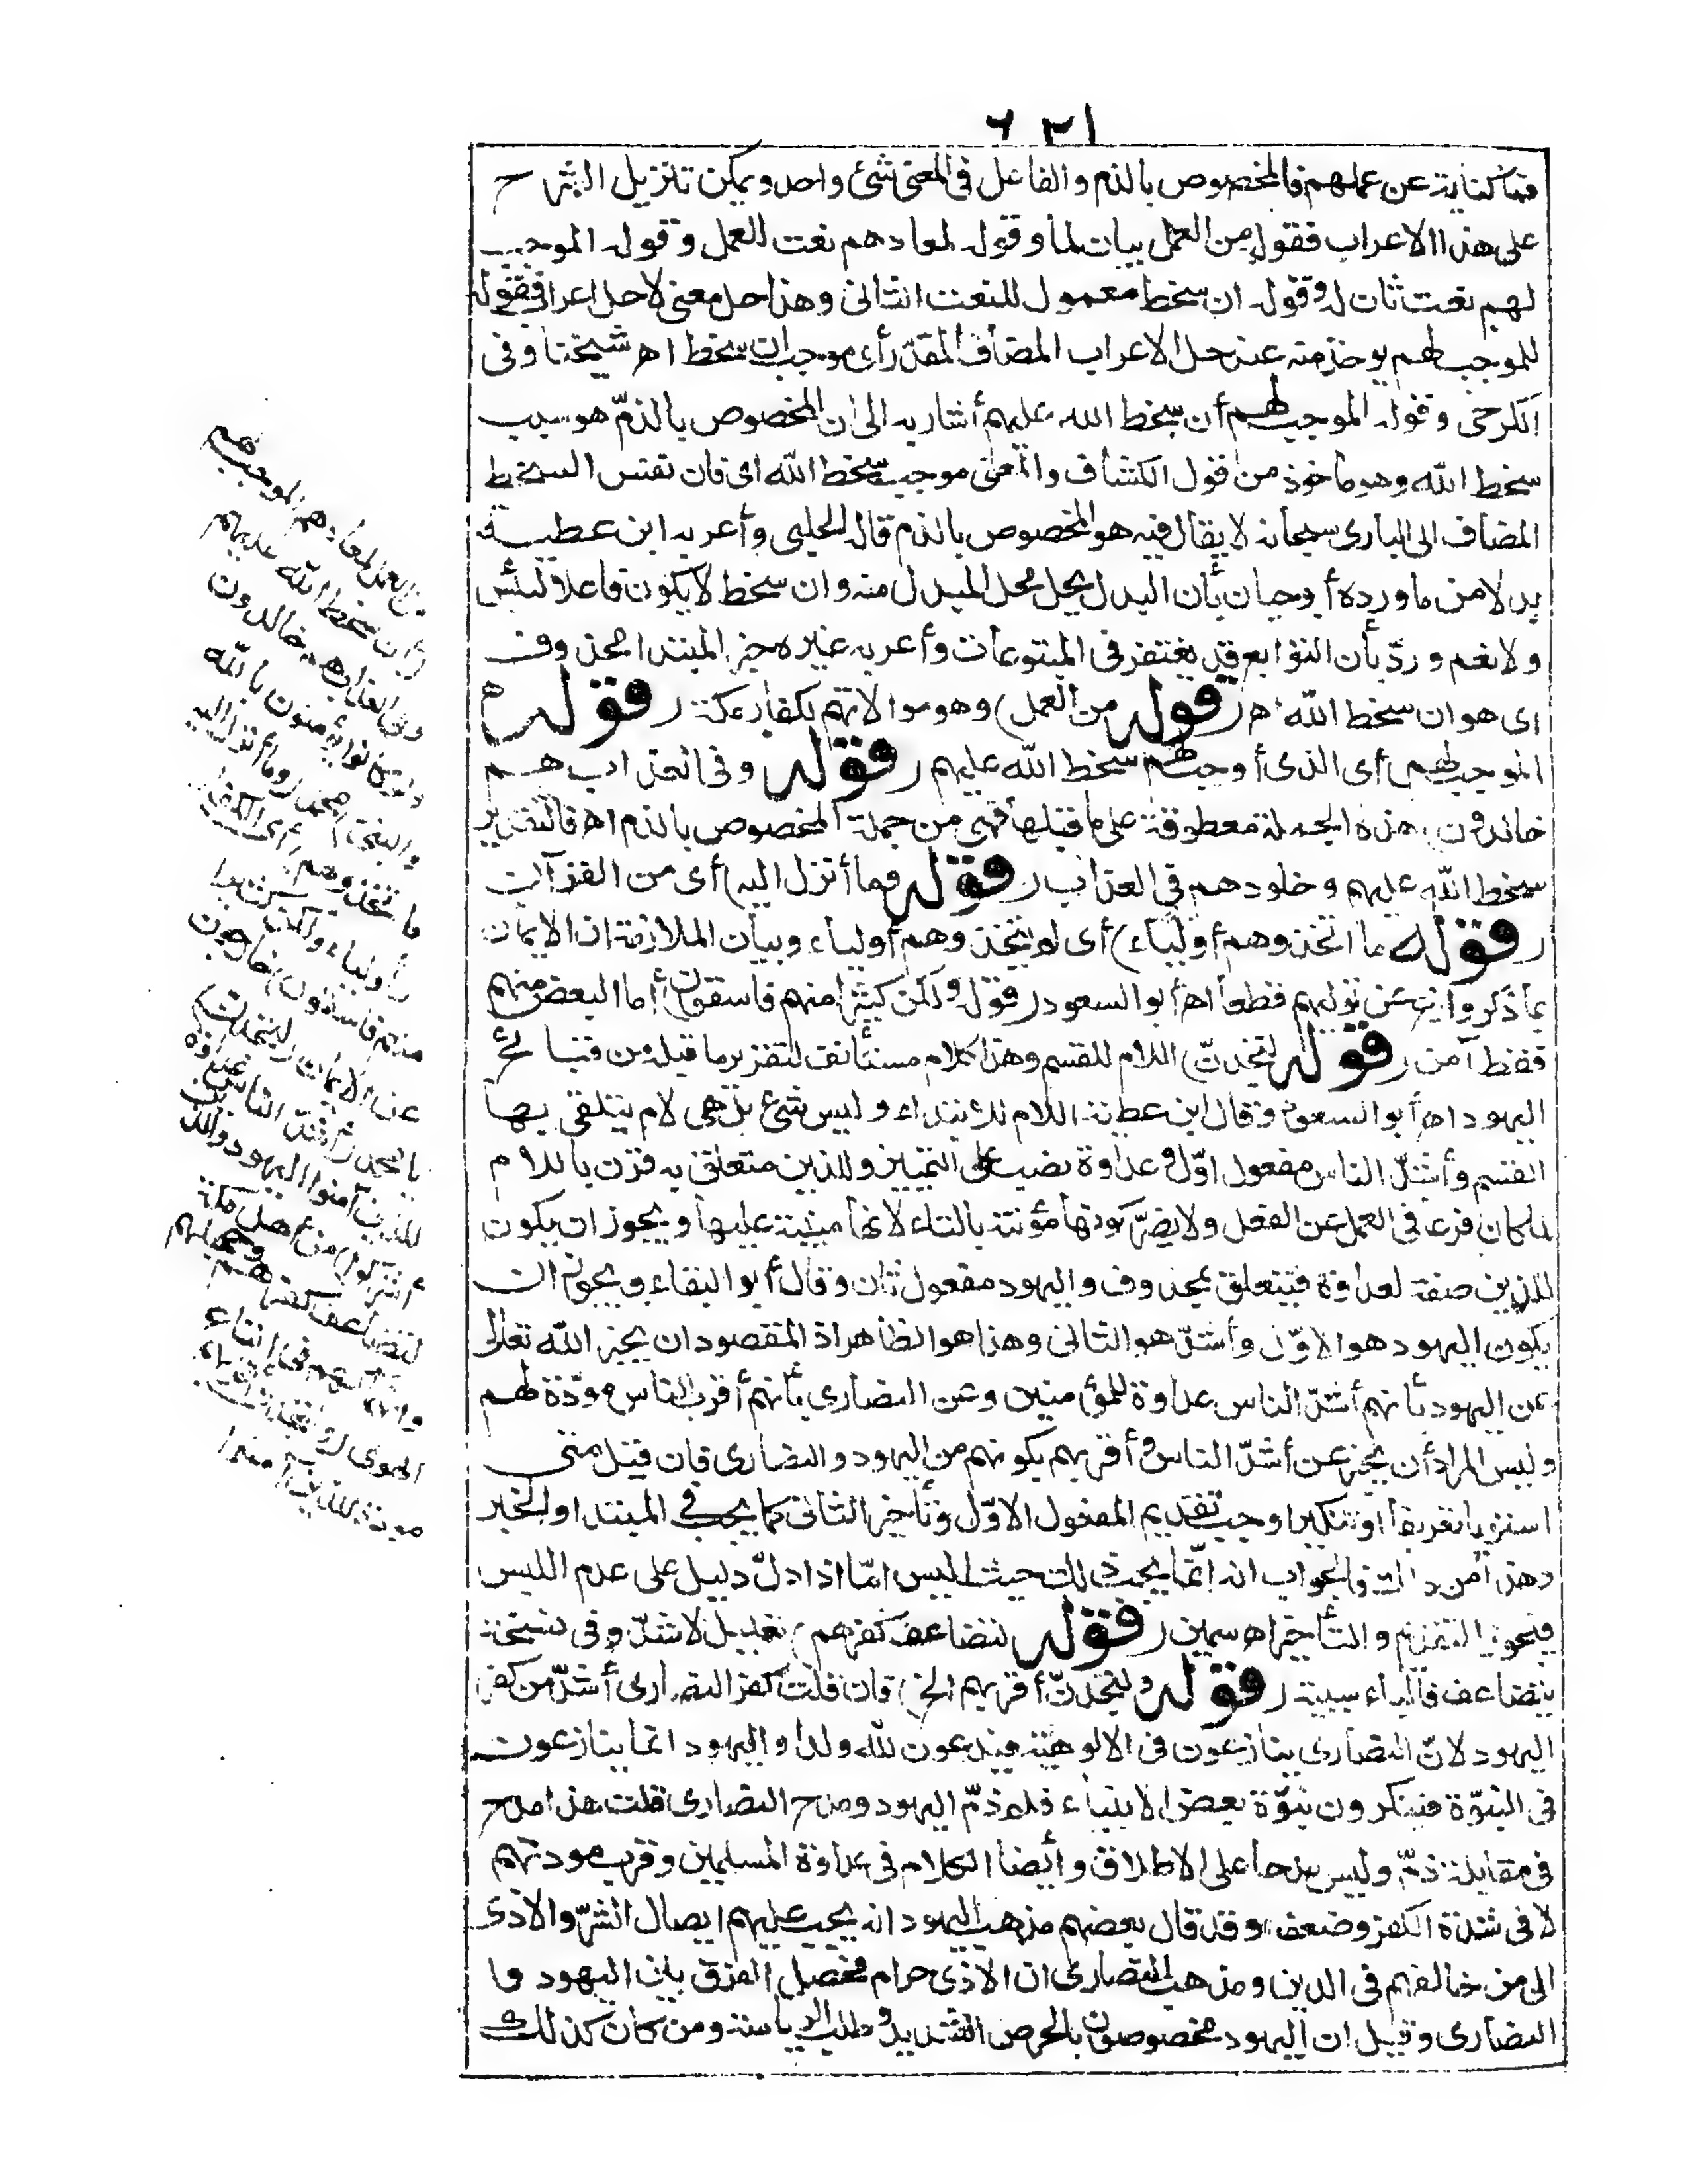 ٦٢١
فما كناية عن عملهم فالمخصوص بالذم والفاعل في المعنى شئ واحد ويمكن تنزيل الشرح
على هذا الاعراب فقوله من العمل بيان لما وقوله لمعادهم نعت للعمل وقوله الموجب
لهم نعت ثان له وقوله ان سخط معمول للنعت الثاني وهذا حل معنى لا حل اعراب فقوله
للموجب لهم يوخذ منه عند حل الاعراب المضاف المقدّر أى موجب ان سخط اه شيخنا وفى
الكرخى وقوله الموجب لهم أن سخط الله عليهم أشار به الى ان المخصوص بالذمّ هو سبب
سخط الله وهو ماخوذ من قول الكشاف والمعنى موجب سخط الله اى فان نفس السخط
المضاف الى البارى سبحانه لا يقال فيه هو المخصوص بالذم قاله الحلبى وأعربه ابن عطية
بدلا من ما ورده أبو حيان بأن البدل يحل محل المبدل منه وان سخط لا يكون فاعلا لبئس
ولا نعم وردّ بأن التوابع قد يغتفر فى المتبوعات وأعربه غيره خبر المبتدا محذوف
اى هو ان سخط الله اه (قوله من العمل) وهو موالاتهم لكفار مكة (قوله
الموجب لهم) أى الذى أوجب لهم سخط الله عليهم (قوله وفى العذاب هم
خالدون) هذه الجملة معطوفة على ما قبلها فهى من جملة المخصوص بالذم اه فالتقدير
سخط الله عليهم وخلودهم فى العذاب (قوله وما أنزل اليه) أى من القرآن
(قوله ما اتخذوهم أولياء) أى لم يتخذوهم أولياء وبيان الملازمة ان الايمان
بما ذكر وازع عن توليهم قطعا اه أبو السعود (قوله ولكن كثيرا منهم فاسقون) أما البعض منهم
فقط آمن (قوله لتجدنّ) اللام للقسم وهذا كلام مستأنف لتقرير ما قبله من قبائح
اليهود اه أبو السعود وقال ابن عطية اللام للابتداء وليس شئ بل هى لام يتلقى بها
القسم وأشدّ الناس مفعول اوّل وعداوة نصب على التمييز وللذين متعلق به قرن باللام
لما كان فرعا فى العمل عن الفعل ولا يضرّ كونها مؤنثة بالتاء لانها مبنية عليها ويجوز ان يكون
للذين صفة لعداوة فيتعلق بمحذوف واليهود مفعول ثان وقال أبو البقاء ويجوز ان
يكون اليهود هو الاوّل وأشدّ هو الثانى وهذا هو الظاهر اذ المقصود ان يخبر الله تعالى
عن اليهود بأنهم أشدّ الناس عداوة للمؤمنين وعن النصارى بأنهم أقرب الناس مودّة لهم
وليس المراد أن يخبر عن أشدّ الناس وأقربهم بكونهم من اليهود والنصارى فان قيل متى
استويا تعريفا أو تنكيرا وجب تقديم المفعول الاوّل وتأخير الثانى كما يجب فى المبتدا والخبر
وهذا من ذاك فالجواب انه انّما يجب ذلك حيث البس امّا اذا دلّ دليل على عدم اللبس
فيجوز التقديم والتأخير اه سمين (قوله لتضاعف كفرهم) تعليل لاشدّ وفى نسخة
بتضاعف فالباء سببية (قوله ولتجدنّ أقربهم الخ) فان قلت كفر النصارى أشدّ من كفر
اليهود لانّ النصارى ينازعون فى الالوهية فيدعون لله ولدا واليهود انما ينازعون
فى النبوّة فينكرون نبوّة بعض الانبياء فلم ذمّ اليهود ومدح النصارى قلت هذا مدح
فى مقابلة ذمّ وليس مدحا على الاطلاق وأيضا الكلام فى عداوة المسلمين وقرب مودتهم
لا فى شدّة الكفر وضعفه وقد قال بعضهم مذهب اليهود انه يجب عليهم ايصال الشرّ والاذى
الى من خالفهم فى الدين ومذهب النصارى ان الاذى حرام فحصل الفرق بين اليهود وا
النصارى وقيل ان اليهود مخصوصون بالحرص الشديد وطلب الرياسة ومن كان كذلك
من العمل لمعادهم الموجب لهم
(أن سخط الله عليهم
وفى العذاب هم خالدون
ولو كانوا يؤمنون بالله
والنبى) محمد (وما أنزل اليه
ما اتخذوهم) أى الكفار
(أولياء ولكن كثيرا
منهم فاسقون) خارجون
عن الايمان (لتجدن)
يا محمد (أشدّ الناس عداوة
للذين آمنوا اليهود والذين
أشركوا) من أهل مكة
لتضاعف كفرهم وجهلهم
وانهماكهم فى اتباع
الهوى (ولتجدن أقربهم
مودة للذين آمنوا